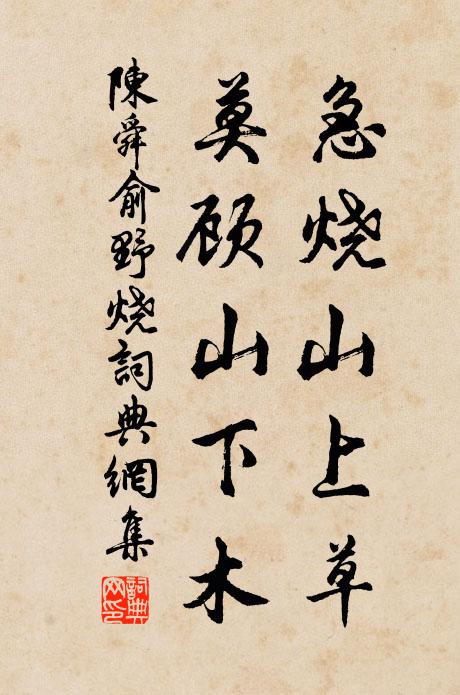 急烧山上草
莫顾山下木
陳舜俞野烧詞典網集
詞典网印